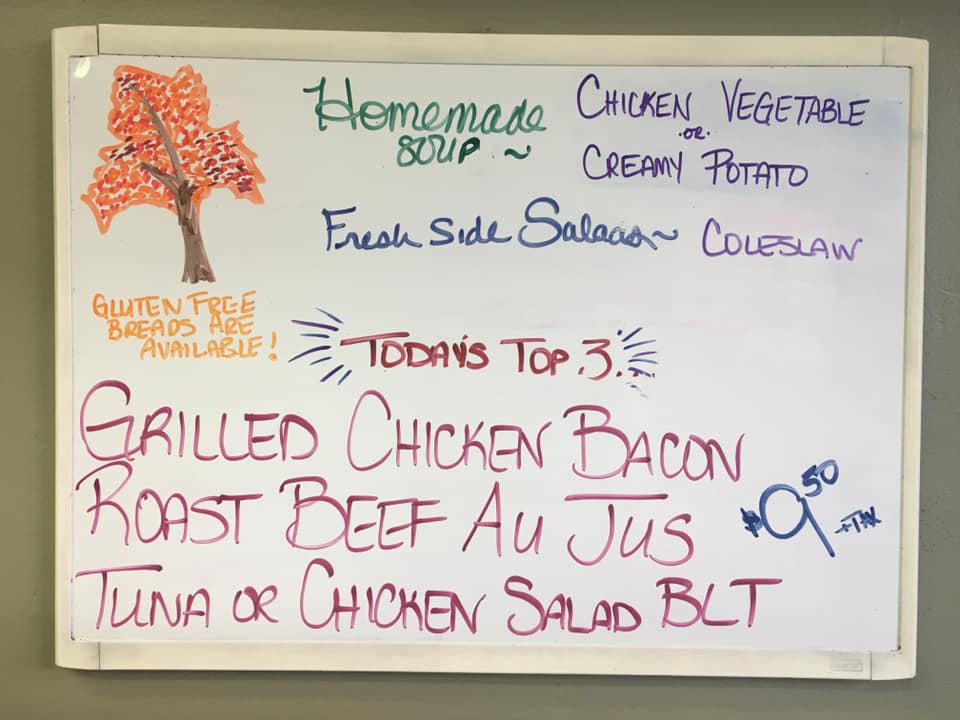 Homemade
SOUP ~
CHICKEN VEGETABLE
OR
CREAMY POTATO
Fresh Side Salads ~ COLESLAW
GLUTEN FREE
BREADS ARE
AVAILABLE!
TODAY'S TOP 3...
GRILLED CHICKEN BACON
ROAST BEEF AU JUS
$9.50 +TAX
TUNA OR CHICKEN SALAD BLT